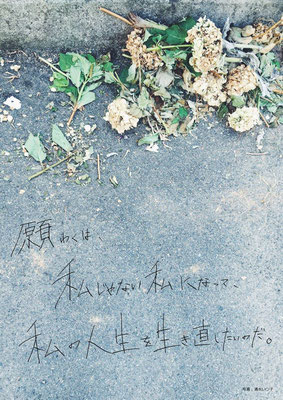 願わくは、
私じゃない私になって、
私の人生を生き直したいのだ。